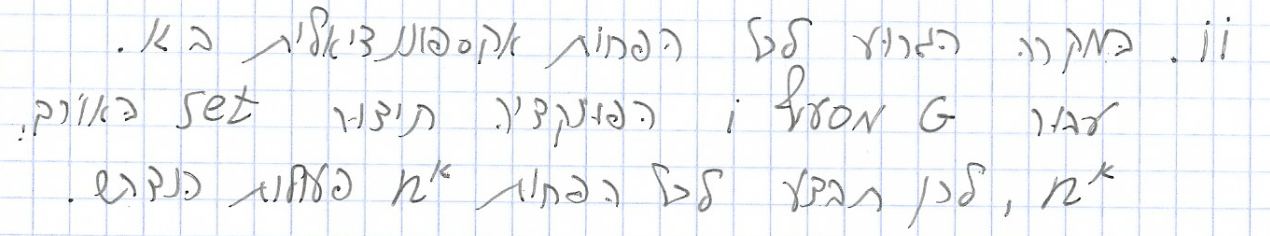 ii. במקרה הגרוע לכל הפחות אקספוננציאלית ב א.
עבור G מסעיף i הפונקציה תיצור set באורך,
n^א, לכן תבצע לכל הפחות n^א פעולות כנדרש.